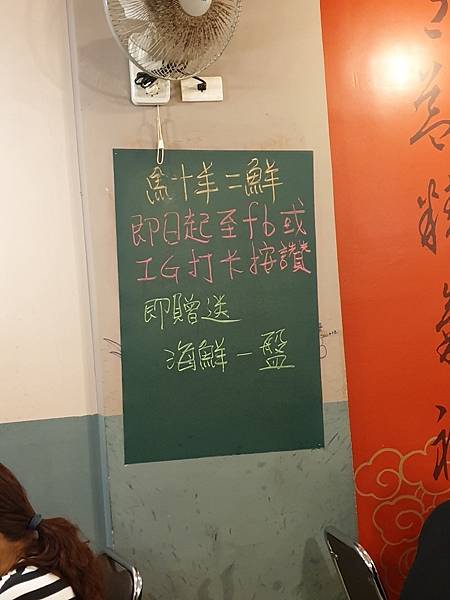 魚十羊=鮮
即日起至fb或
IG打卡按讚
即贈送
海鮮一盤